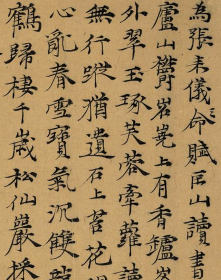 為張来儀命賦匡山讀書
廬山欝岧嶤上有香鑪
外翠玉琢芙蓉牽蘿讀
無行蹤猶遺石上苔花
心亂春雪寶氣沉雙
鶴歸棲千歲松仙巖採